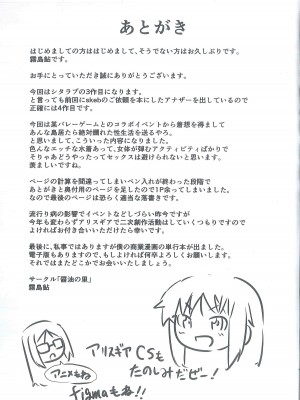 あとがき
はじめましての方ははじめまして、そうでない方はお久しぶりです。
霧島鮎です。
お手にとっていただき誠にありがとうございます。
今回はシタラブの3作目になります。
と言っても前回にskebのご依頼を本にしたアナザーを出しているので
正確には4作目です。
今回は某バレーゲームとのコラボイベントから着想を得まして
あんな島居たら絶対爛れた性生活を送るやろ。
と思いまして、こういった内容になりました。
色んなエッチな水着あって、女体が弾むアクティビティばかりで
そりゃあどうやったってセックスは避けられないと思います。
羨ましいですね。
ページの計算を間違えてしまいペン入れが終わった段階で
あとがきと奥付用のページを足したので1P余ってしまいました。
なので最後のページは恐らく適当な落書きです。
流行り病の影響でイベントなどしづらい昨今ですが
今年も変わらずアリスギアで二次創作活動はしていくつもりですので
よければお付き合いいただけると幸いです。
最後に、私事ではありますが僕の商業漫画の単行本が出ました。
電子版もありますので、もしよければ何卒よろしくお願いします。
それではまたどこかでお会いいたしましょう。
サークル「醤油の里」
霧島鮎
アリスギアCSも
たのしみだぜー!
アニメもね
figmaもね!!